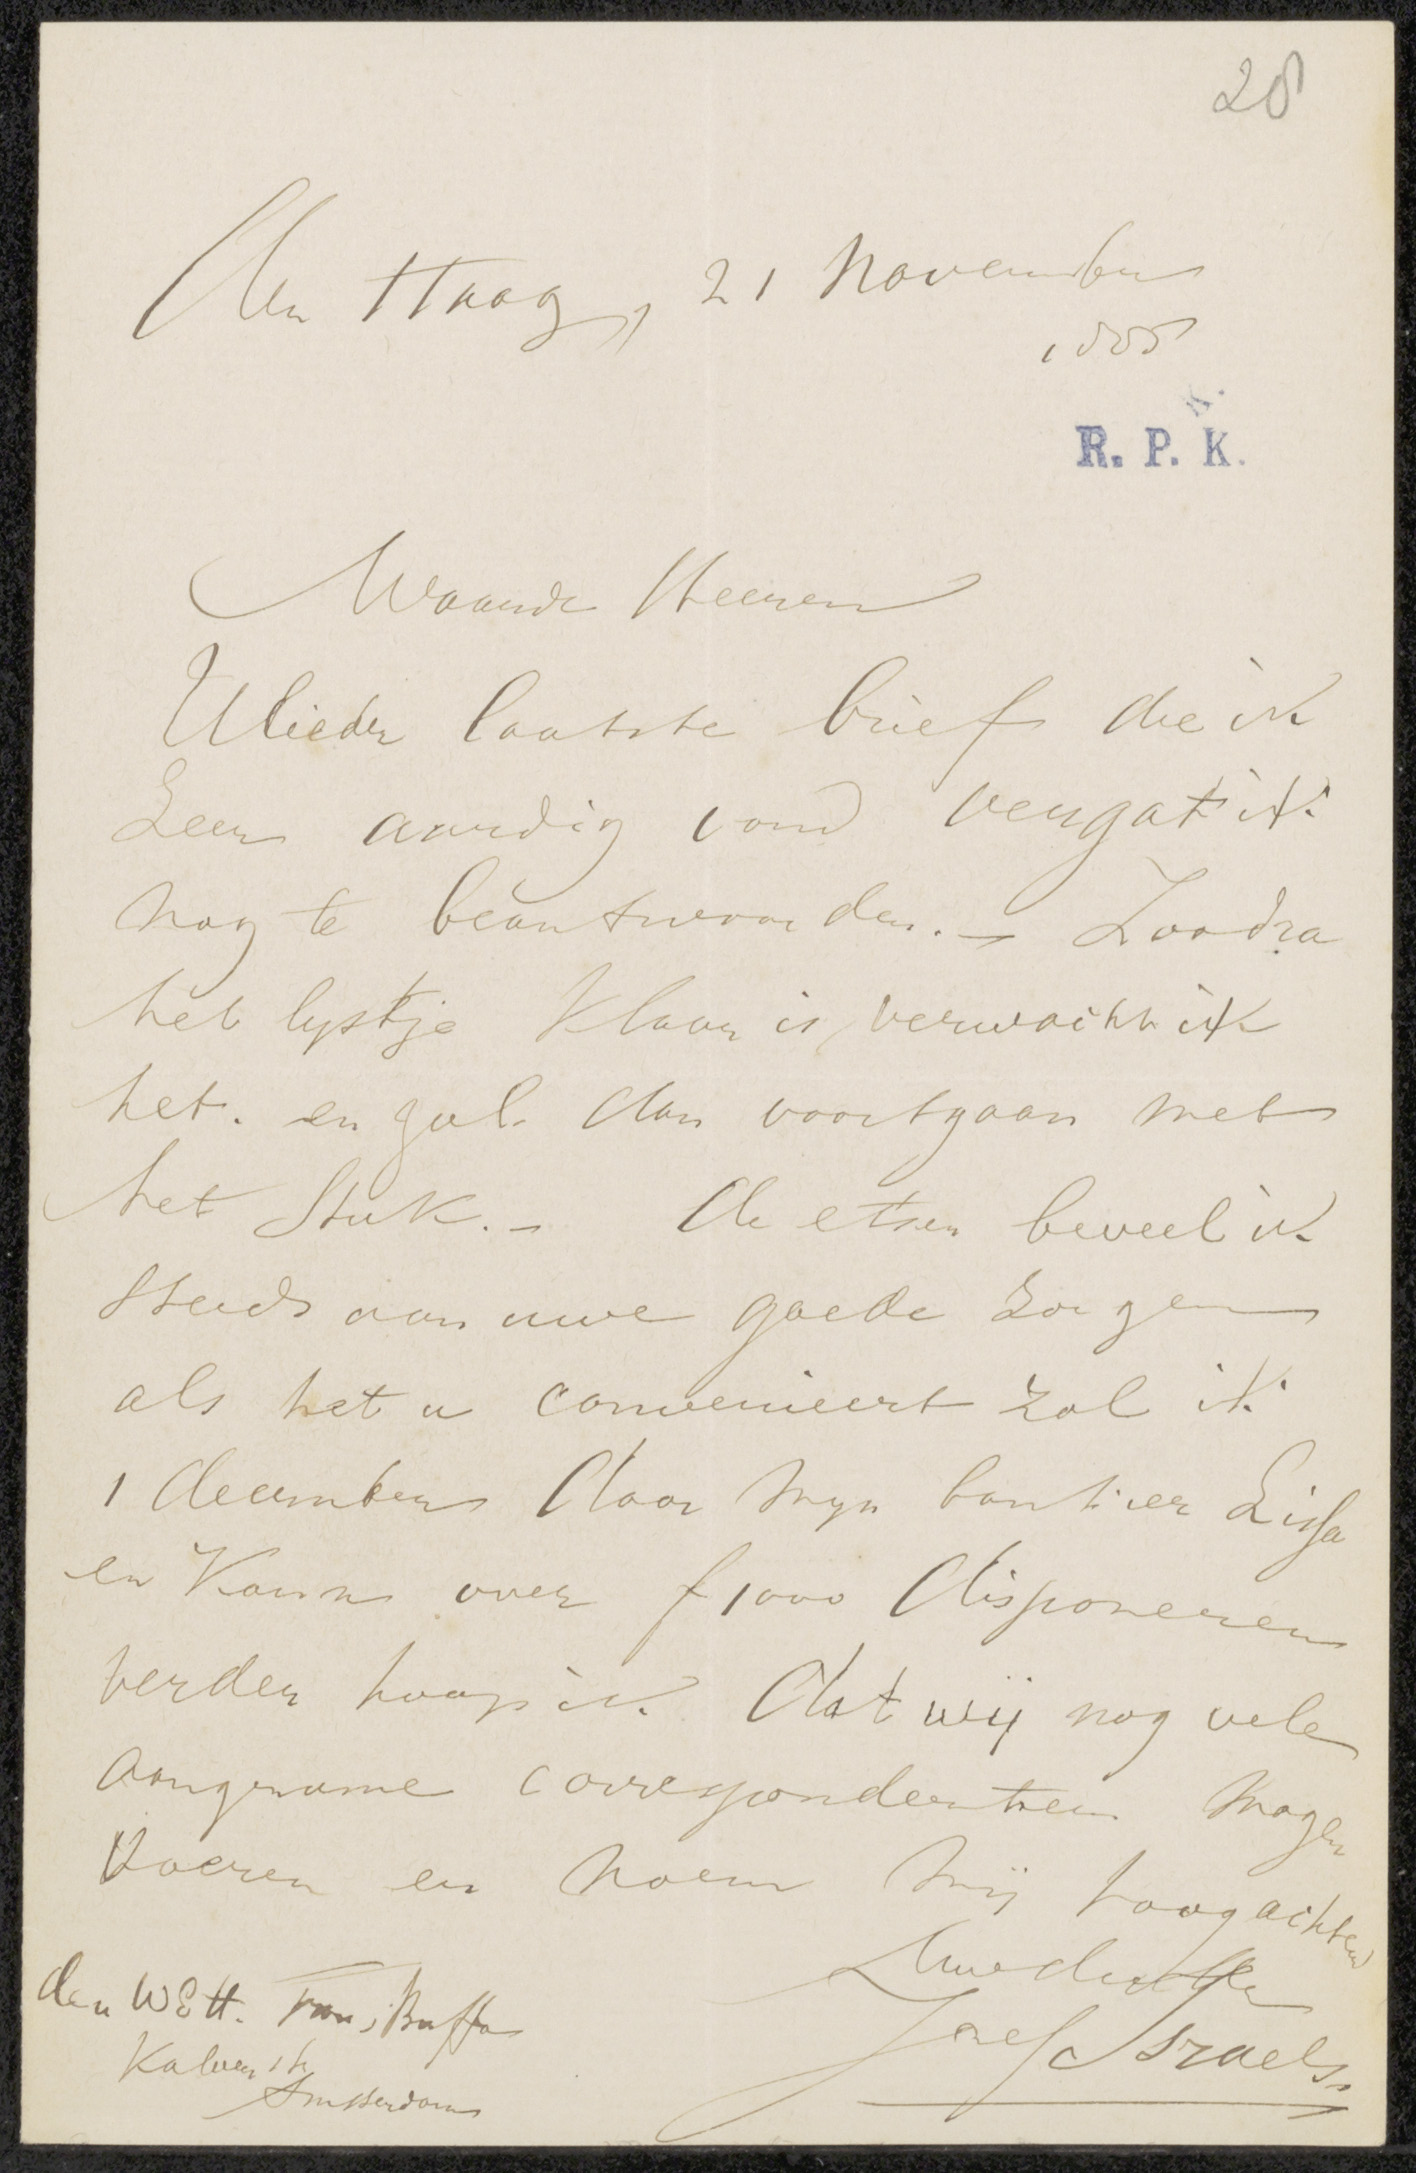 28
den Haag, 21 November
1885
R. P. K.
Waarde Heeren
Ulieder laatste brief die ik
Zeer aardig vond vergat ik
nog te beantwoorden. — Zoodra
het lystje klaar is verwacht ik
het. en zal dan voortgaan met
het Stuk. — de etsen beveel ik
steeds aan uwe goede zorgen
als het u convenieert zal ik
1 december door myn bankier Lissa
en Kann over f 1000 disponeren
verder hoop ik dat wij nog vele
aangename correspondentien mogen
voeren en noem mij hoogachtend
Uwe
Jozef Israels
den WEH. Frans Buffa
Kalverstr
Amsterdam